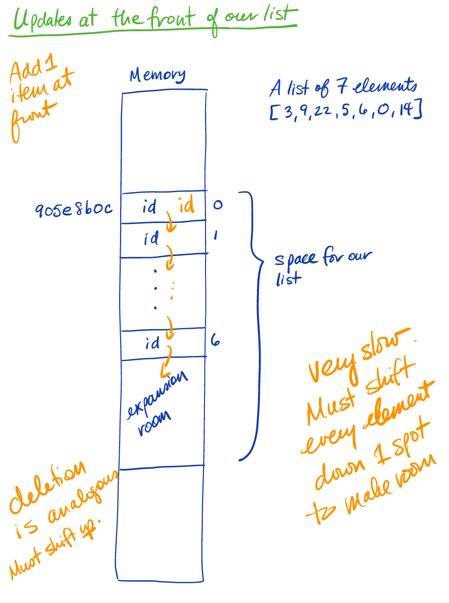 Updates at the front of our list
Add 1
item at
front
Memory
A list of 7 elements
[3,9,22,5,6,0,14]
905e8b0c
id id 0
id 1
id 6
space for our
list
expansion
room
very slow.
Must shift
every element
down 1 spot
to make room
deletion
is analogous
Must shift up.